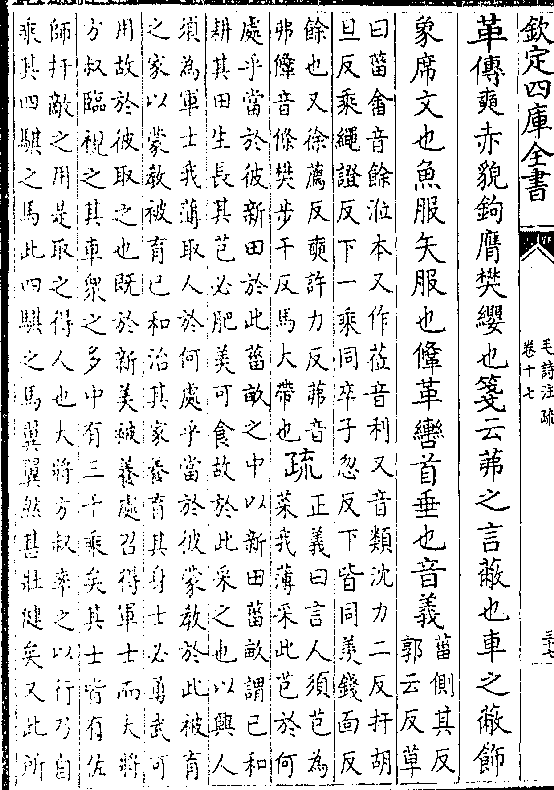 欽定四庫全書
毛詩注疏
卷十七
革傳奭赤貌鉤膺樊纓也箋云茀之言蔽也車之蔽飾
象席文也魚服矢服也鞗革轡首垂也音義
菑側其反
郭云反草
曰菑畬音餘涖本又作莅音利又音類沈力二反扞胡
旦反乘繩證反下一乘同卒子忽反下皆同羨錢面反
餘也又徐薦反奭許力反茀音
弗鞗音條樊步干反馬大帶也
疏
正義曰言人須芑為
菜我薄采此芑於何
處乎當於彼新田於此菑畝之中以新田菑畝謂已和
耕其田生長其芑必肥美可食故於此采之也以興人
須為軍士我薄取人於何處乎當於彼蒙教於此被育
之家以蒙教被育已和治其家養育其身士必勇武可
用故於彼取之也既於新美被養處召得軍士而大將
方叔臨視之其車衆之多中有三千乘矣其士皆有佐
師扞敵之用是取之得人也大將方叔率之以行乃自
乘其四騏之馬此四騏之馬翼翼然甚壯健矣又此所